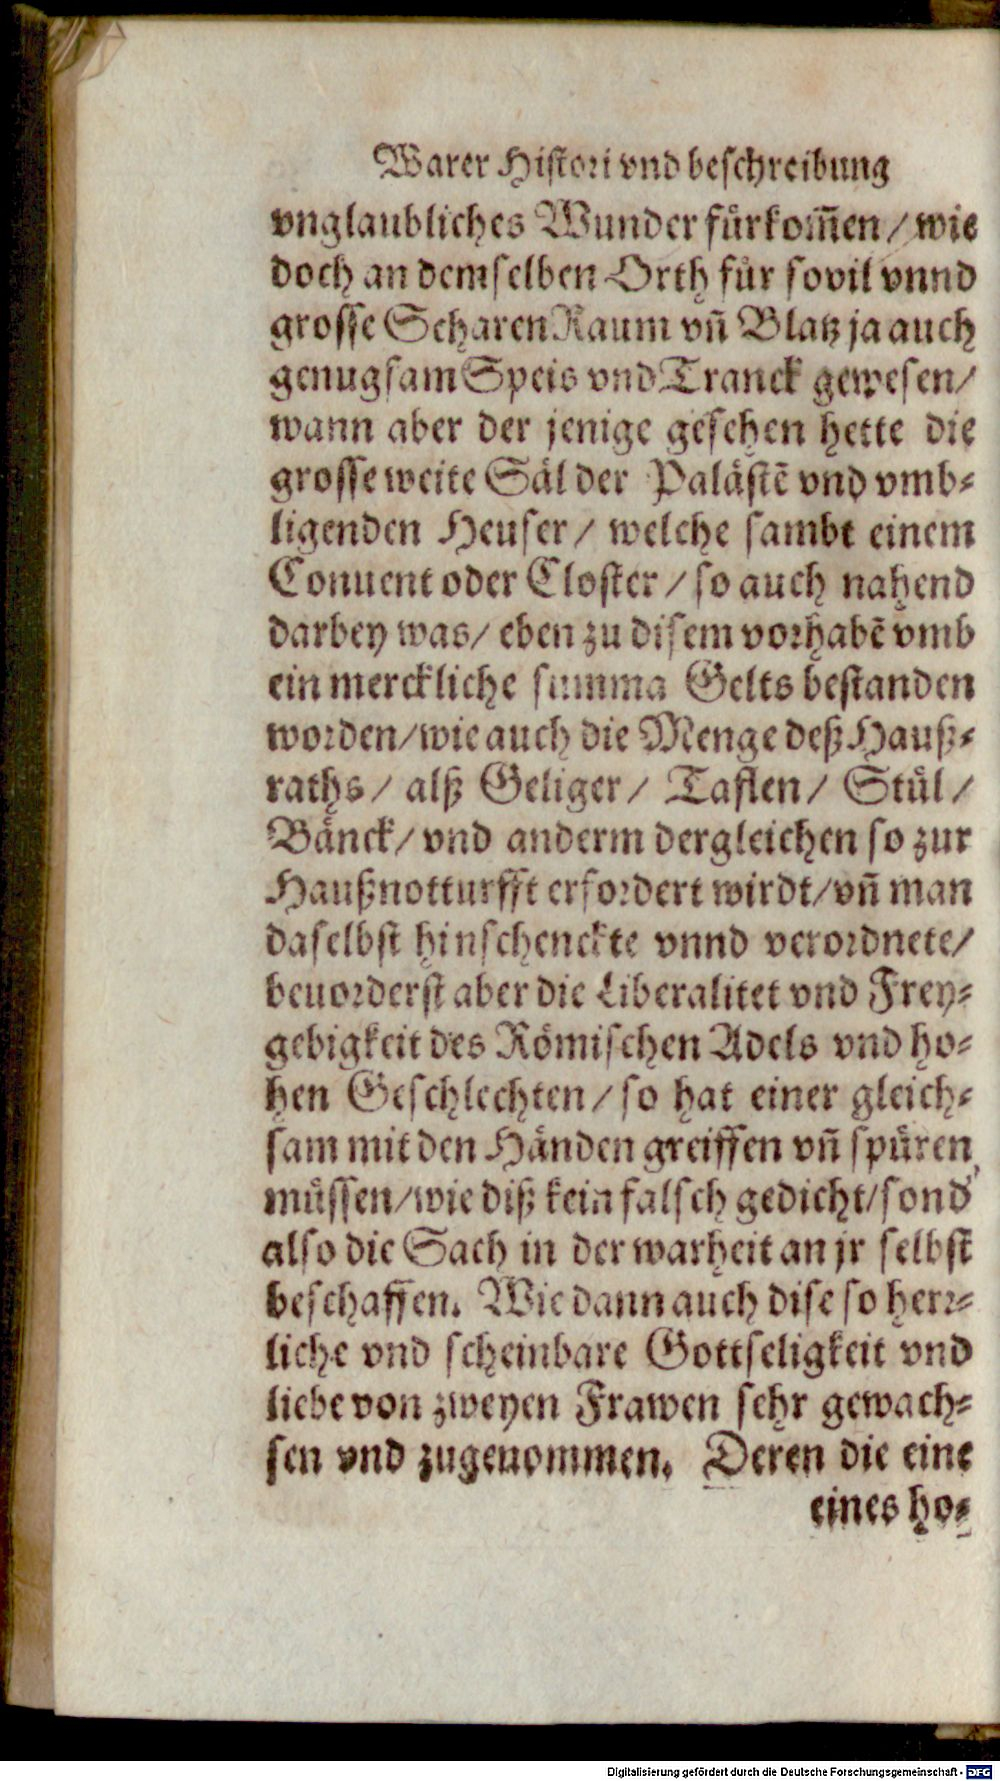 Warer Histori vnd beschreibung
vnglaubliches Wunder fürkom̃en / wie
doch an demselben Orth für sovil vnnd
grosse Scharen Raum vñ Blatz ja auch
genugsam Speis vnd Tranck gewesen /
wann aber der jenige gesehen hette die
grosse weite Säl der Palästẽ vnd vmb-
ligenden Heuser / welche sambt einem
Conuent oder Closter / so auch nahend
darbey was / eben zu disem vorhabẽ vmb
ein merckliche summa Gelts bestanden
worden / wie auch die Menge deß Hauß-
raths / alß Geliger / Taflen / Stül /
Bänck / vnd anderm dergleichen so zur
Haußnotturfft erfordert wirdt / vñ man
daselbst hinschenckte vnnd verordnete /
beuorderst aber die Liberalitet vnd Frey-
gebigkeit des Römischen Adels vnd ho-
hen Geschlechten / so hat einer gleich-
sam mit den Händen greiffen vñ spüren
müssen / wie diß kein falsch gedicht / sond'
also die Sach in der warheit an jr selbst
beschaffen. Wie dann auch dise so herr-
liche vnd scheinbare Gottseligkeit vnd
liebe von zweyen Frawen sehr gewach-
sen vnd zugenommen. Deren die eine
eines ho-
Digitalisierung gefördert durch die Deutsche Forschungsgemeinschaft - DFG